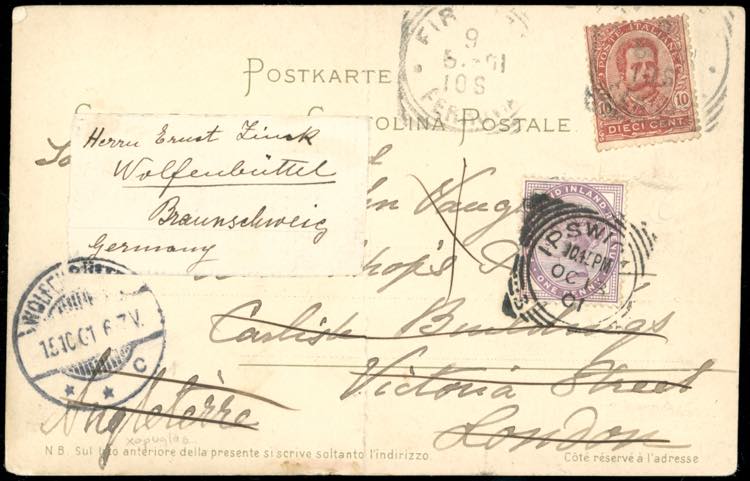 POSTKARTE
CARTOLINA POSTALE
FIR
9
5-01
10S
FERROVIA
POSTE ITALIANE
10 10
DIECI CENT
Herrn Ernst Zinck
Wolfenbüttel
Braunschweig
Germany
Vaug
op's
Carlisle Buildings
Victoria Street
London
Angleterre
INLAND
ONE PENNY
IPSWICH
1045PM
OC
01
WOLFENBÜTTEL
15.10.01 6-7V.
C
N B. Sul lato anteriore della presente si scrive soltanto l'indirizzo.
Côté réservé à l'adresse